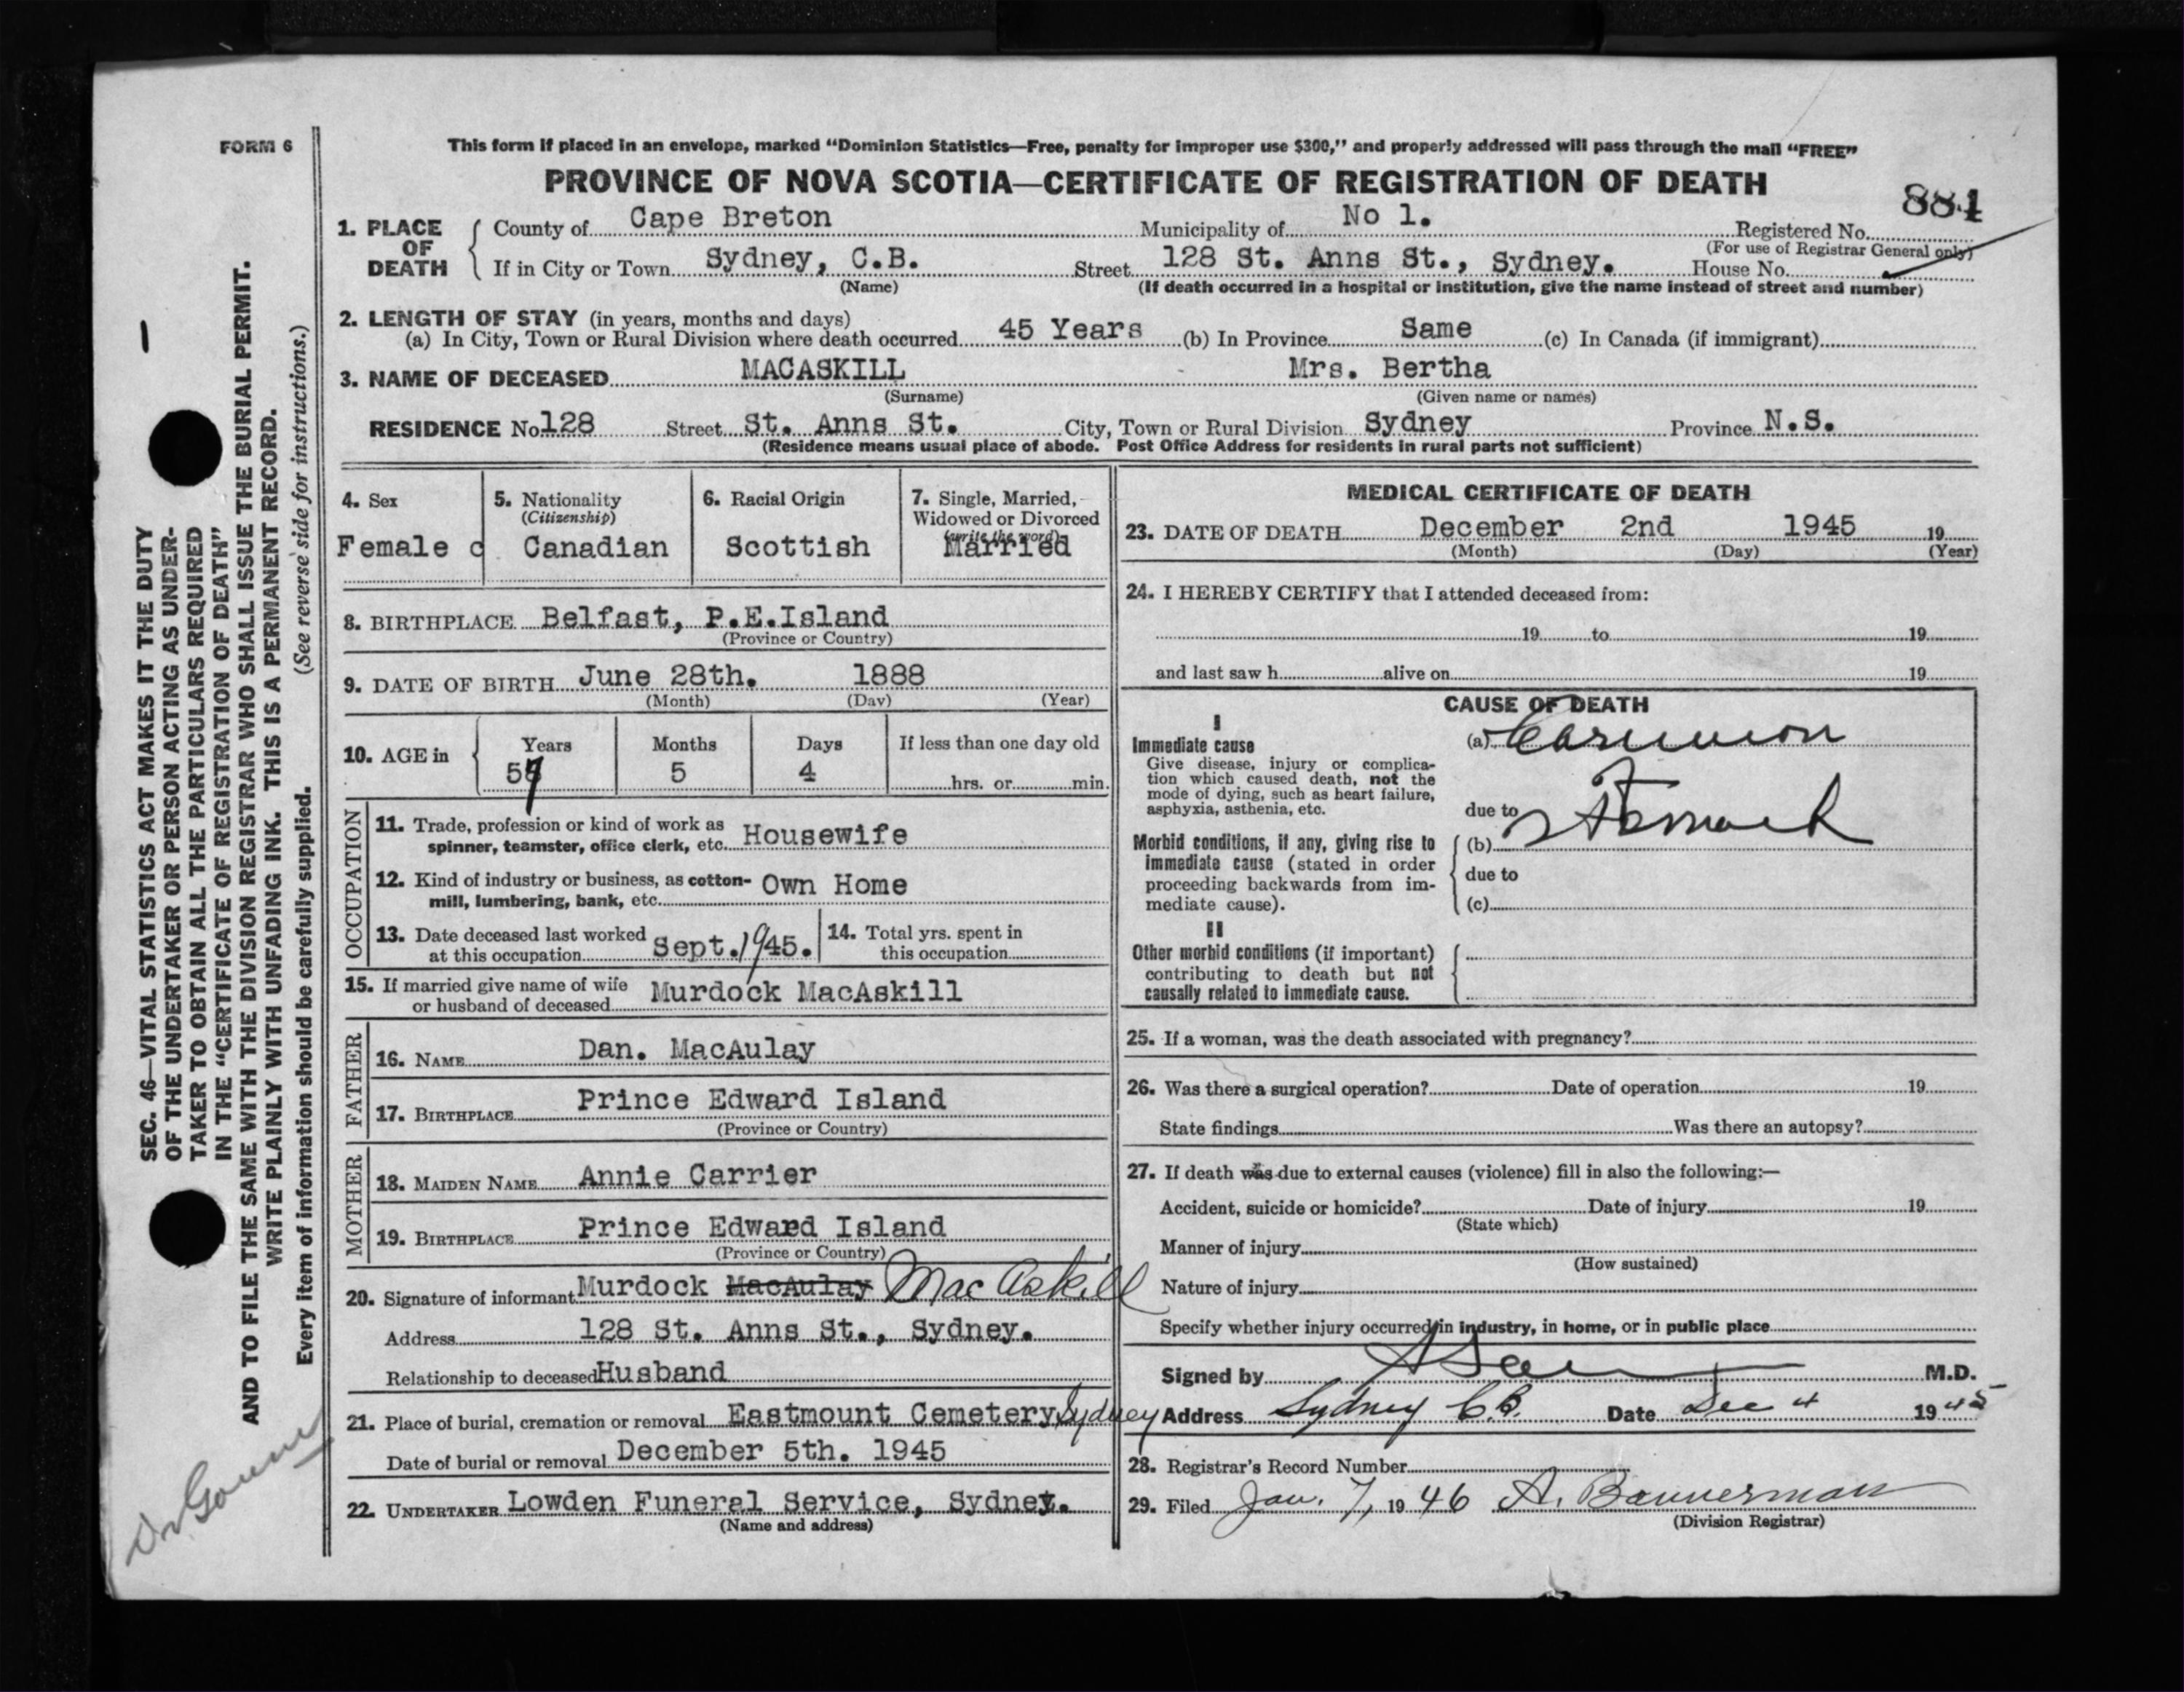 FORM 6
This form if placed in an envelope, marked “Dominion Statistics—Free, penalty for improper use $300,” and properly addressed will pass through the mail “FREE”
PROVINCE OF NOVA SCOTIA—CERTIFICATE OF REGISTRATION OF DEATH
884
1. PLACE OF DEATH County of Cape Breton Municipality of No 1. Registered No.
(For use of Registrar General only)
If in City or Town Sydney, C.B. Street 128 St. Anns St., Sydney. House No.
(Name) (If death occurred in a hospital or institution, give the name instead of street and number)
2. LENGTH OF STAY (in years, months and days)
(a) In City, Town or Rural Division where death occurred 45 Years (b) In Province Same (c) In Canada (if immigrant)
3. NAME OF DECEASED MACASKILL Mrs. Bertha
(Surname) (Given name or names)
RESIDENCE No. 128 Street St. Anns St. City, Town or Rural Division Sydney Province N.S.
(Residence means usual place of abode. Post Office Address for residents in rural parts not sufficient)
4. Sex
Female c
5. Nationality
(Citizenship)
Canadian
6. Racial Origin
Scottish
7. Single, Married,
Widowed or Divorced
(write the word)
Married
8. BIRTHPLACE Belfast, P.E.Island
(Province or Country)
9. DATE OF BIRTH June 28th. 1888
(Month) (Day) (Year)
10. AGE in Years Months Days If less than one day old
57 5 4 hrs. or min.
OCCUPATION
11. Trade, profession or kind of work as
spinner, teamster, office clerk, etc. Housewife
12. Kind of industry or business, as cotton-
mill, lumbering, bank, etc. Own Home
13. Date deceased last worked
at this occupation Sept. 1945.
14. Total yrs. spent in
this occupation
15. If married give name of wife
or husband of deceased Murdock MacAskill
FATHER
16. NAME Dan. MacAulay
17. BIRTHPLACE Prince Edward Island
(Province or Country)
MOTHER
18. MAIDEN NAME Annie Carrier
19. BIRTHPLACE Prince Edward Island
(Province or Country)
20. Signature of informant Murdock MacAulay MacAskill
Address 128 St. Anns St., Sydney.
Relationship to deceased Husband
21. Place of burial, cremation or removal Eastmount Cemetery Sydney
Date of burial or removal December 5th. 1945
22. UNDERTAKER Lowden Funeral Service, Sydney.
(Name and address)
MEDICAL CERTIFICATE OF DEATH
23. DATE OF DEATH December 2nd 1945 19
(Month) (Day) (Year)
24. I HEREBY CERTIFY that I attended deceased from:
19 to 19
and last saw h alive on 19
CAUSE OF DEATH
I
Immediate cause
Give disease, injury or complica-
tion which caused death, not the
mode of dying, such as heart failure,
asphyxia, asthenia, etc.
(a)
due to
Morbid conditions, if any, giving rise to
immediate cause (stated in order
proceeding backwards from im-
mediate cause).
(b) Stomach
due to
(c)
II
Other morbid conditions (if important)
contributing to death but not
causally related to immediate cause.
25. If a woman, was the death associated with pregnancy?
26. Was there a surgical operation? Date of operation 19
State findings Was there an autopsy?
27. If death was due to external causes (violence) fill in also the following:—
Accident, suicide or homicide? Date of injury 19
(State which)
Manner of injury
(How sustained)
Nature of injury
Specify whether injury occurred in industry, in home, or in public place
Signed by M.D.
Address Sydney C.B. Date Dec 4 1945
28. Registrar's Record Number
29. Filed Jan. 7, 1946 A. Bannerman
(Division Registrar)
SEC. 46—VITAL STATISTICS ACT MAKES IT THE DUTY
OF THE UNDERTAKER OR PERSON ACTING AS UNDER-
TAKER TO OBTAIN ALL THE PARTICULARS REQUIRED
IN THE “CERTIFICATE OF REGISTRATION OF DEATH”
AND TO FILE THE SAME WITH THE DIVISION REGISTRAR WHO SHALL ISSUE THE BURIAL PERMIT.
WRITE PLAINLY WITH UNFADING INK. THIS IS A PERMANENT RECORD.
Every item of information should be carefully supplied. (See reverse side for instructions.)
Dr